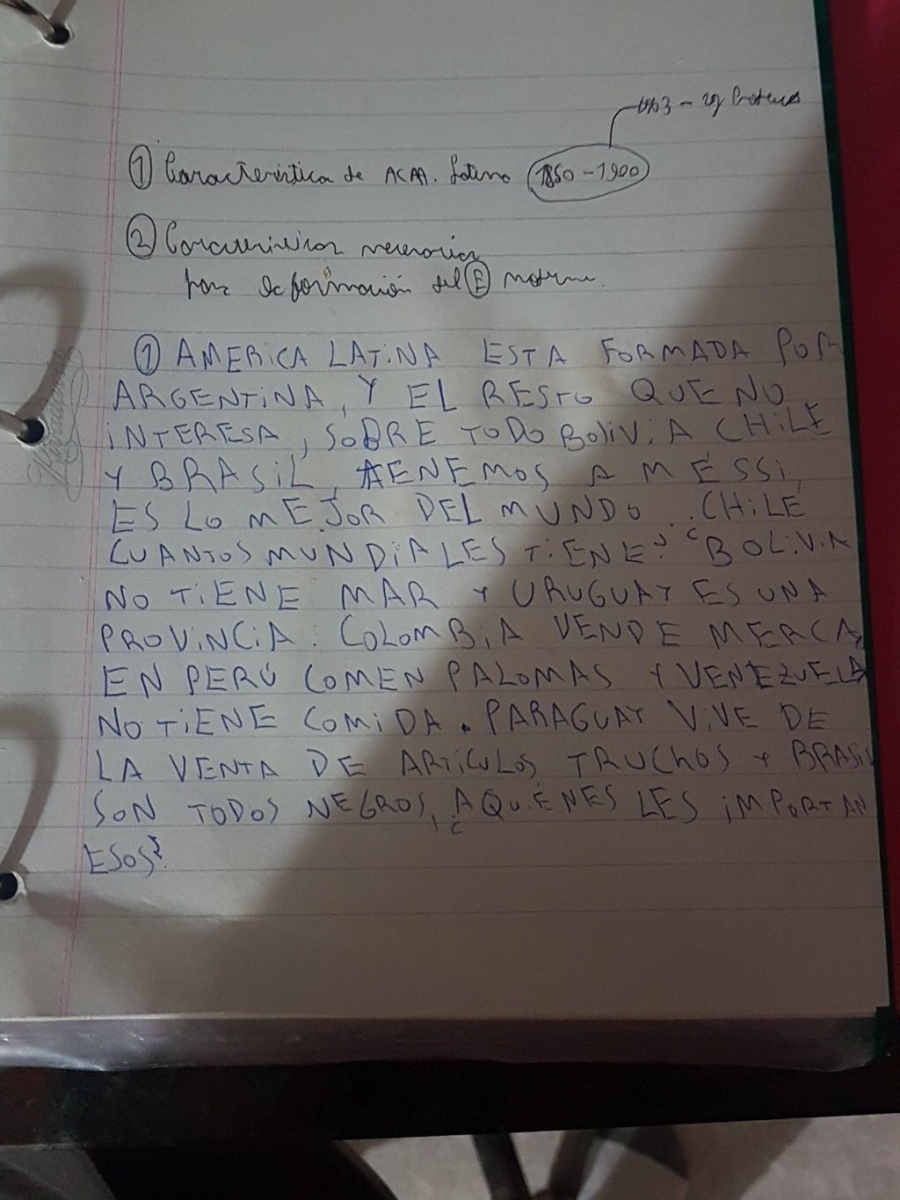 ① Característica de ACAA. Latino 1850-1900
②
para la formación del Ⓔ
① AMERICA LATINA ESTA FORMADA POR
ARGENTINA, Y EL RESTO QUE NO
INTERESA, SOBRE TODO BOLIVIA CHILE
Y BRASIL, TENEMOS A MESSI,
ES LO MEJOR DEL MUNDO. CHILE
CUANTOS MUNDIALES TIENE? ¿BOLIVIA
NO TIENE MAR Y URUGUAY ES UNA
PROVINCIA. COLOMBIA VENDE MERCA,
EN PERÚ COMEN PALOMAS Y VENEZUELA
NO TIENE COMIDA. PARAGUAY VIVE DE
LA VENTA DE ARTICULOS TRUCHOS Y BRASIL
SON TODOS NEGROS, ¿A QUIENES LES IMPORTAN
ESOS?